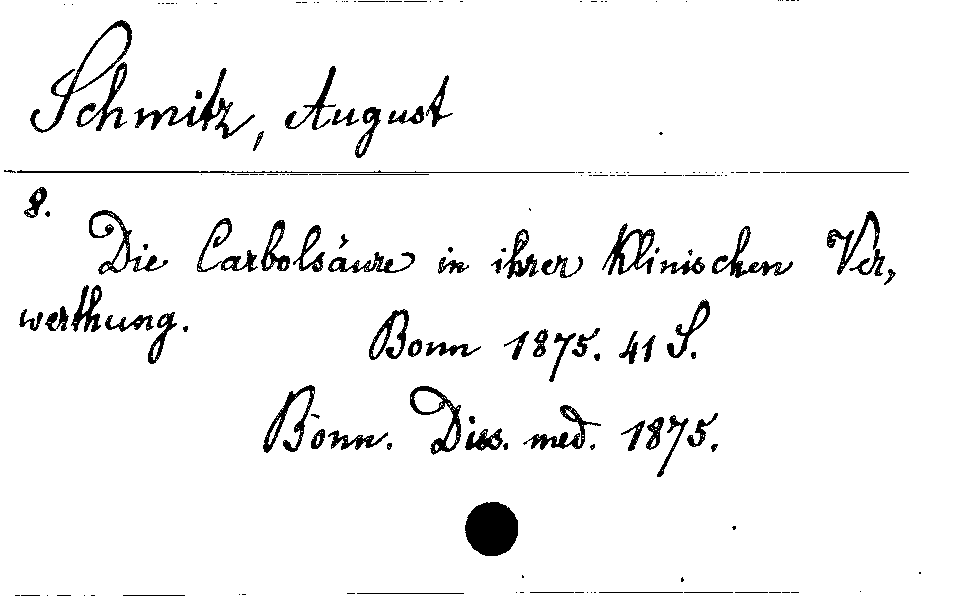 Schmitz, August
8.
Die Carbolsäure in ihrer klinischen Ver,
werthung.
Bonn 1875. 41 S.
Bonn. Diss. med. 1875.